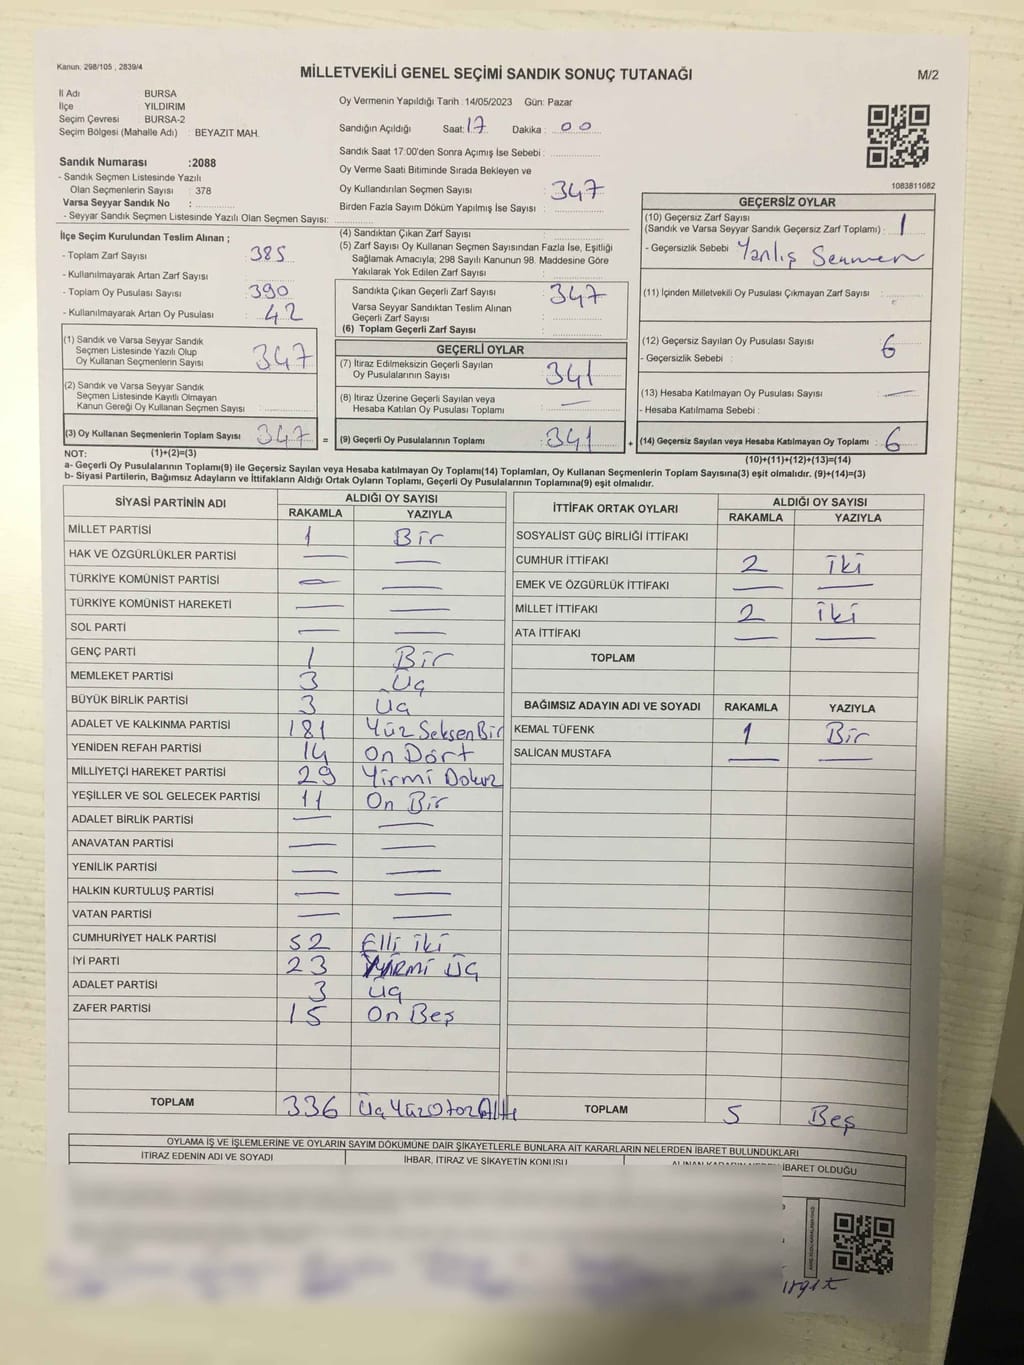 Kanun: 298/105 , 2839/4
MİLLETVEKİLİ GENEL SEÇİMİ SANDIK SONUÇ TUTANAĞI
M/2
İl Adı BURSA
İlçe YILDIRIM
Seçim Çevresi BURSA-2
Seçim Bölgesi (Mahalle Adı) : BEYAZIT MAH.
Oy Vermenin Yapıldığı Tarih : 14/05/2023 Gün: Pazar
Sandığın Açıldığı Saat: 17 Dakika : 00
Sandık Saat 17:00'den Sonra Açımış İse Sebebi :
Sandık Numarası :2088
- Sandık Seçmen Listesinde Yazılı
Olan Seçmenlerin Sayısı : 378
Varsa Seyyar Sandık No :
- Seyyar Sandık Seçmen Listesinde Yazılı Olan Seçmen Sayısı:
Oy Verme Saati Bitiminde Sırada Bekleyen ve
Oy Kullandırılan Seçmen Sayısı : 347
Birden Fazla Sayım Döküm Yapılmış İse Sayısı :
1083811082
İlçe Seçim Kurulundan Teslim Alınan ;
- Toplam Zarf Sayısı : 385
- Kullanılmayarak Artan Zarf Sayısı :
- Toplam Oy Pusulası Sayısı : 390
- Kullanılmayarak Artan Oy Pusulası : 42
(1) Sandık ve Varsa Seyyar Sandık
Seçmen Listesinde Yazılı Olup
Oy Kullanan Seçmenlerin Sayısı : 347
(2) Sandık ve Varsa Seyyar Sandık
Seçmen Listesinde Kayıtlı Olmayan
Kanun Gereği Oy Kullanan Seçmen Sayısı :
(3) Oy Kullanan Seçmenlerin Toplam Sayısı : 347 =
(4) Sandıktan Çıkan Zarf Sayısı :
(5) Zarf Sayısı Oy Kullanan Seçmen Sayısından Fazla İse, Eşitliği
Sağlamak Amacıyla; 298 Sayılı Kanunun 98. Maddesine Göre
Yakılarak Yok Edilen Zarf Sayısı :
Sandıkta Çıkan Geçerli Zarf Sayısı : 347
Varsa Seyyar Sandıktan Teslim Alınan
Geçerli Zarf Sayısı :
(6) Toplam Geçerli Zarf Sayısı :
GEÇERLİ OYLAR
(7) İtiraz Edilmeksizin Geçerli Sayılan
Oy Pusulalarının Sayısı : 341
(8) İtiraz Üzerine Geçerli Sayılan veya
Hesaba Katılan Oy Pusulası Toplamı : —
(9) Geçerli Oy Pusulalarının Toplamı : 341 +
GEÇERSİZ OYLAR
(10) Geçersiz Zarf Sayısı
(Sandık ve Varsa Seyyar Sandık Geçersiz Zarf Toplamı) : 1
- Geçersizlik Sebebi : Yanlış Seçmen
(11) İçinden Milletvekili Oy Pusulası Çıkmayan Zarf Sayısı :
(12) Geçersiz Sayılan Oy Pusulası Sayısı : 6
- Geçersizlik Sebebi :
(13) Hesaba Katılmayan Oy Pusulası Sayısı : —
- Hesaba Katılmama Sebebi :
(14) Geçersiz Sayılan veya Hesaba Katılmayan Oy Toplamı : 6
NOT: (1)+(2)=(3) (10)+(11)+(12)+(13)=(14)
a- Geçerli Oy Pusulalarının Toplamı(9) ile Geçersiz Sayılan veya Hesaba katılmayan Oy Toplamı(14) Toplamları, Oy Kullanan Seçmenlerin Toplam Sayısına(3) eşit olmalıdır. (9)+(14)=(3)
b- Siyasi Partilerin, Bağımsız Adayların ve İttifakların Aldığı Ortak Oyların Toplamı, Geçerli Oy Pusulalarının Toplamına(9) eşit olmalıdır.
SİYASİ PARTİNİN ADI ALDIĞI OY SAYISI
RAKAMLA YAZIYLA
MİLLET PARTİSİ 1 Bir
HAK VE ÖZGÜRLÜKLER PARTİSİ — —
TÜRKİYE KOMÜNİST PARTİSİ — —
TÜRKİYE KOMÜNİST HAREKETİ — —
SOL PARTİ — —
GENÇ PARTİ 1 Bir
MEMLEKET PARTİSİ 3 Üç
BÜYÜK BİRLİK PARTİSİ 3 Üç
ADALET VE KALKINMA PARTİSİ 181 Yüz Seksen Bir
YENİDEN REFAH PARTİSİ 14 On Dört
MİLLİYETÇİ HAREKET PARTİSİ 29 Yirmi Dokuz
YEŞİLLER VE SOL GELECEK PARTİSİ 11 On Bir
ADALET BİRLİK PARTİSİ — —
ANAVATAN PARTİSİ — —
YENİLİK PARTİSİ — —
HALKIN KURTULUŞ PARTİSİ — —
VATAN PARTİSİ — —
CUMHURİYET HALK PARTİSİ 52 Elli iki
İYİ PARTİ 23 YİRMİ ÜÇ
ADALET PARTİSİ 3 Üç
ZAFER PARTİSİ 15 On Beş
TOPLAM 336 Üç Yüz Otuz Altı
İTTİFAK ORTAK OYLARI ALDIĞI OY SAYISI
RAKAMLA YAZIYLA
SOSYALİST GÜÇ BİRLİĞİ İTTİFAKI
CUMHUR İTTİFAKI 2 İki
EMEK VE ÖZGÜRLÜK İTTİFAKI — —
MİLLET İTTİFAKI 2 İki
ATA İTTİFAKI — —
TOPLAM
BAĞIMSIZ ADAYIN ADI VE SOYADI RAKAMLA YAZIYLA
KEMAL TÜFENK 1 Bir
SALİCAN MUSTAFA — —
TOPLAM 5 Beş
OYLAMA İŞ VE İŞLEMLERİNE VE OYLARIN SAYIM DÖKÜMÜNE DAİR ŞİKAYETLERLE BUNLARA AİT KARARLARIN NELERDEN İBARET BULUNDUKLARI
İTİRAZ EDENİN ADI VE SOYADI İHBAR, İTİRAZ VE ŞİKAYETİN KONUSU İBARET OLDUĞU